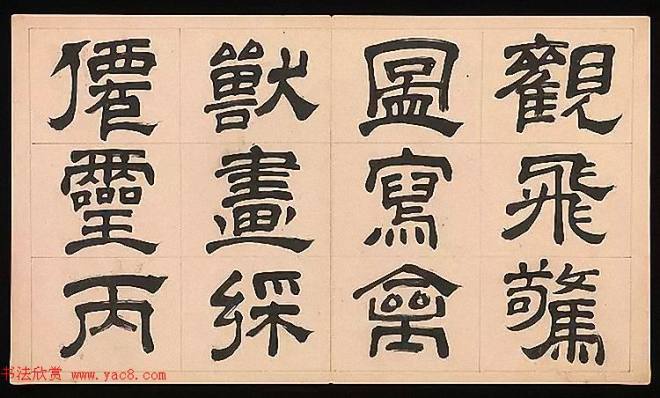 觀飛驚
圖寫禽
獸畫綵
僊靈丙
书法欣赏 www.yac8.com